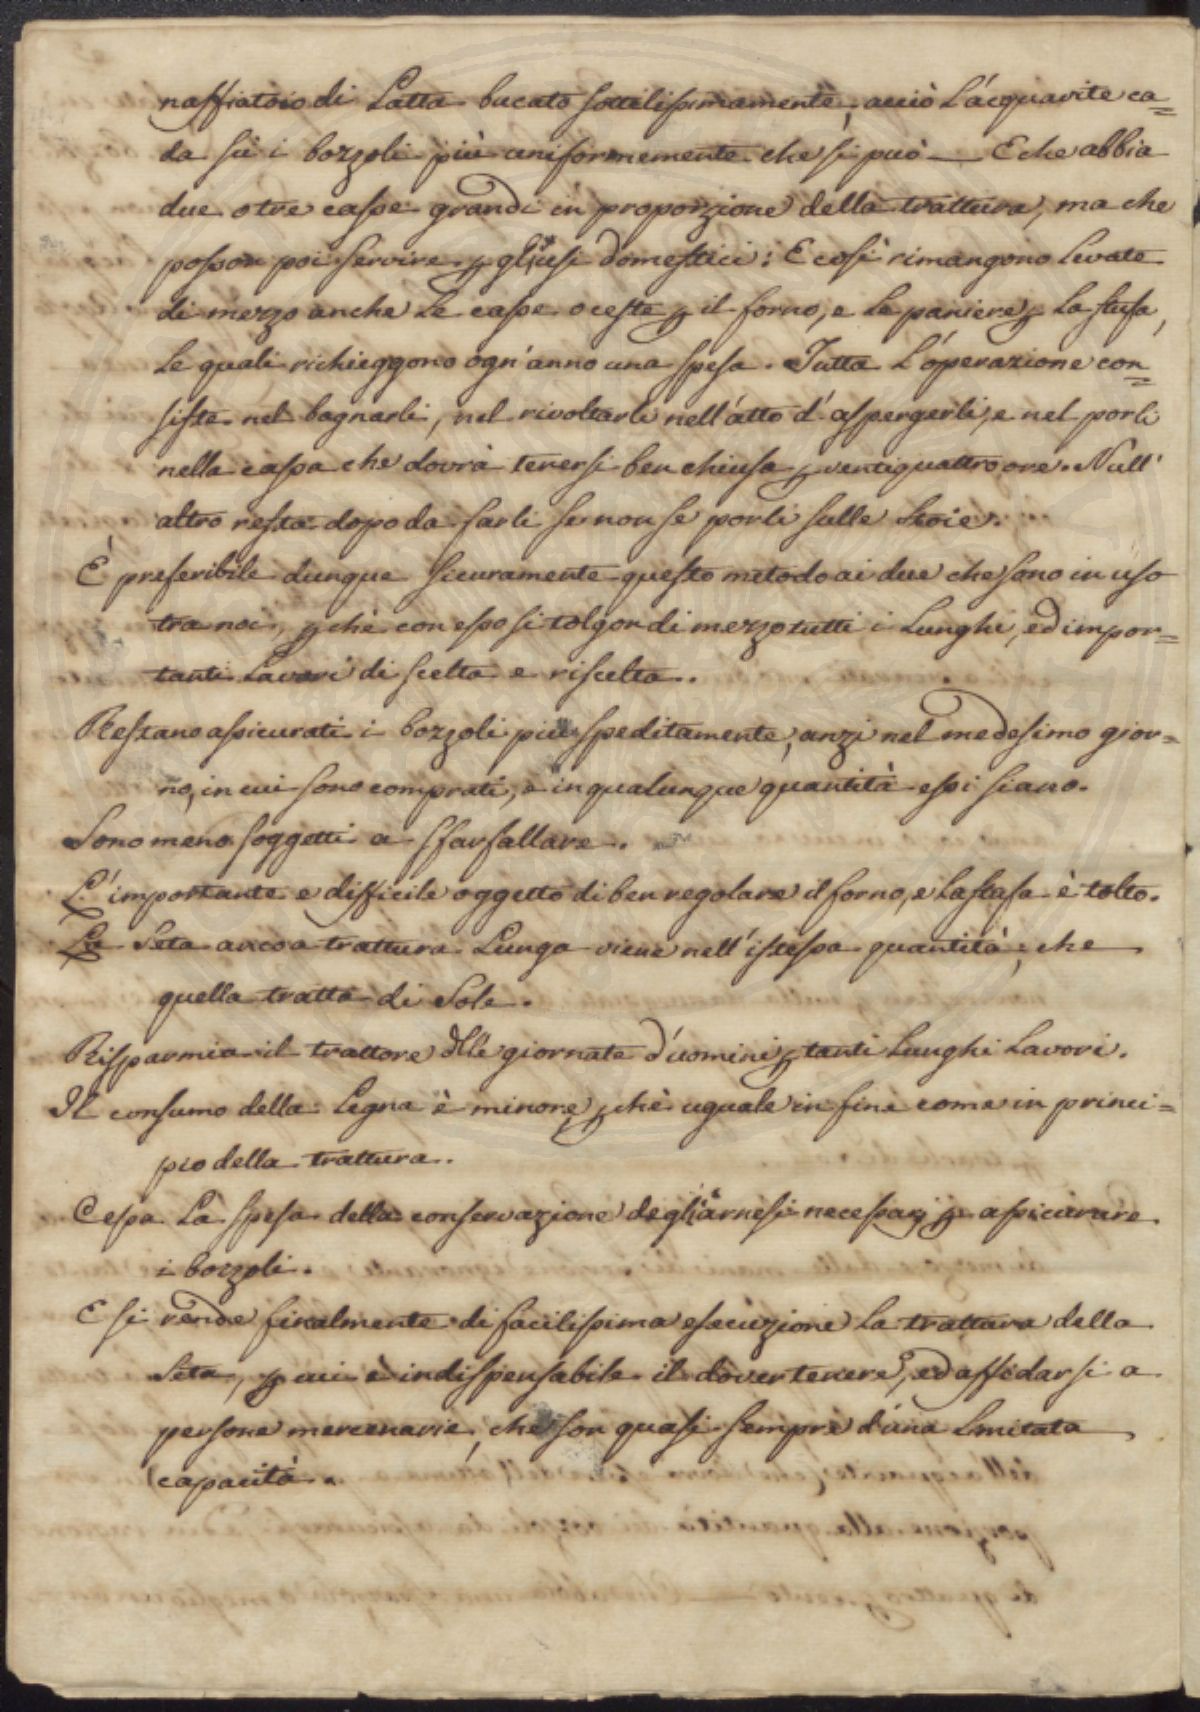 naffiatoio di Latta bucato sottilissimamente, acciò L'acquavite ca=
da sù i bozzoli più uniformemente che si può — E che abbia
due o tre casse grandi in proporzione della trattura, ma che
posson poi servire p gl'usi domestici: E così rimangono Levate
di mezzo anche Le casse o ceste p il forno, e Le paniere p La stufa,
Le quali richieggono ogn'anno una spesa. Tutta L'operazione con=
siste nel bagnarli, nel rivoltarli nell'atto d'aspergerli, e nel porli
nella cassa che dovrà tenersi ben chiusa p ventiquattro ore. Null'
altro resta dopo da farli se non se porli sulle Stoie.
È preferibile dunque sicuramente questo metodo ai due che sono in uso
tra noi, p chè con esso si tolgon di mezzo tutti i Lunghi, ed impor=
tanti Lavori di scelta e riscelta.
Restano assicurati i bozzoli più speditamente, anzi nel medesimo gior=
no, in cui sono comprati, e in qualunque quantità essi siano.
Sono meno soggetti a sfarfallare.
L'importante e difficile oggetto di ben regolare il forno, e La stufa è tolto.
La Seta anco a trattura Lunga viene nell'istessa quantità, che
quella tratta di Sole.
Risparmia il trattore dlle giornate d'uomini p tanti Lunghi Lavori.
Il consumo della Legna è minore, p chè uguale in fine come in princi=
pio della trattura.
Cessa La spesa della conservazione degl'arnesi necessarj p assicurare
i bozzoli.
E si rende finalmente di facilissima esecuzione La trattura della
Seta, p cui è indispensabile il dover tenere, ed affidarsi a
persone mercenarie, che son quasi sempre d'una Limitata
capacità.